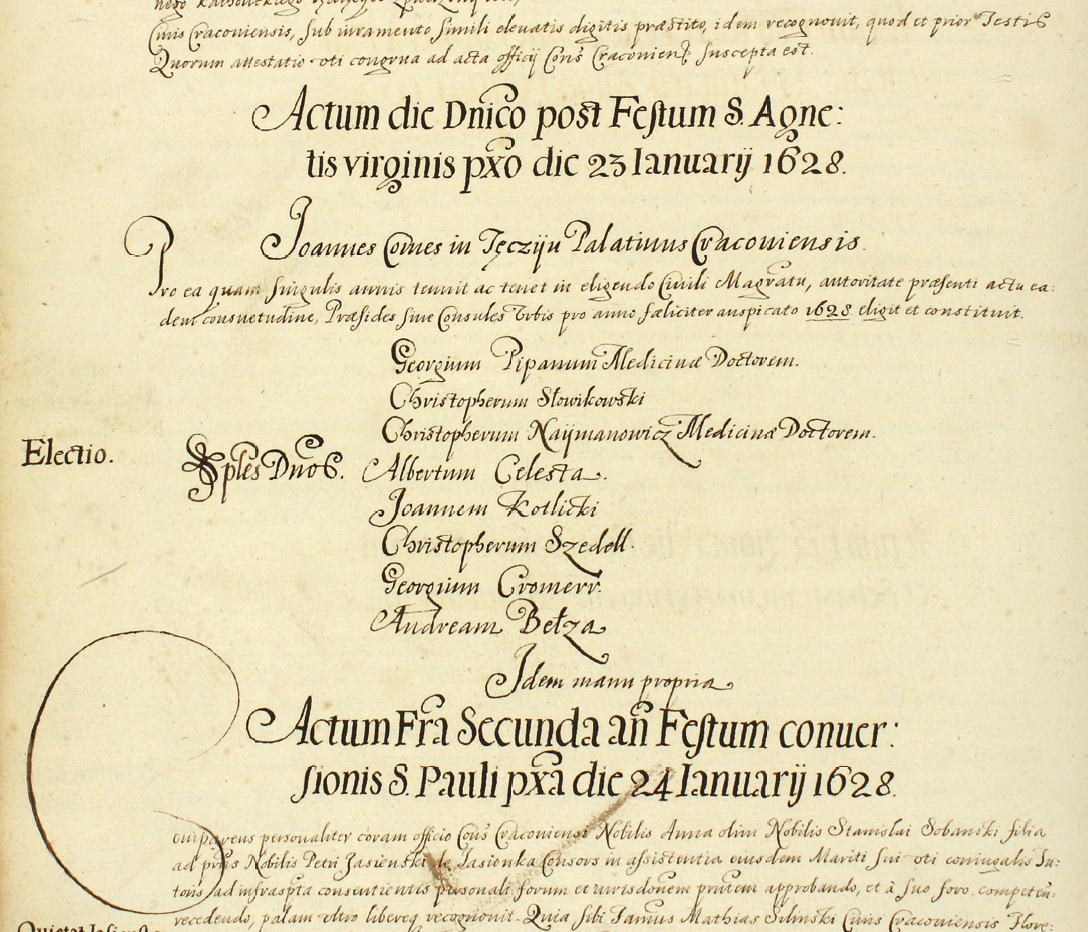 Ciuis Cracouiensis, sub iuramento simili eleuatis digitis præstito, idem recognouit, quod et prior Testis
Quorum attestatio uti congrua ad acta officij Cons Cracouien suscepta est.
Actum die Dnico post Festum S. Agne:
tis virginis pxo die 23 Ianuarij 1628.
Joannes Comes in Tęczijn Palatinus Cracouiensis.
Pro ea quam singulis annis tenuit ac tenet in eligendo Ciuili Magratu, autoritate præsenti actu ea:
dem consuetudine, Præsides siue Consules Urbis pro anno fæliciter auspicato 1628 eligit et constituit.
Georgium Pipanum Medicinæ Doctorem.
Christopherum Słowikowski
Christopherum Naijmanowicz Medicinæ Doctorem.
Electio.
Sples Dnos. Albertum Celesta.
Joannem Kotlicki
Christopherum Szedell.
Georgium Cromerr.
Andream Bełza
Idem manu propria
Actum Fra Secunda an Festum conuer:
sionis S. Pauli pxa die 24 Ianuarij 1628.
Comparens personaliter coram officio Cons Cracouiensi Nobilis Anna olim Nobilis Stanislai Sobanski filia
ad præs Nobilis Petri Jasienski de Jasionka Consors in assistentia eiusdem Mariti sui uti coniugalis Tu:
toris ad infraspta consentientis personali, forum et iurisdonem pntem approbando, et à suo foro competen:
recedendo, palam ultro libereq recognouit. Quia sibi Famus Mathias Silinski Ciuis Cracouiensis